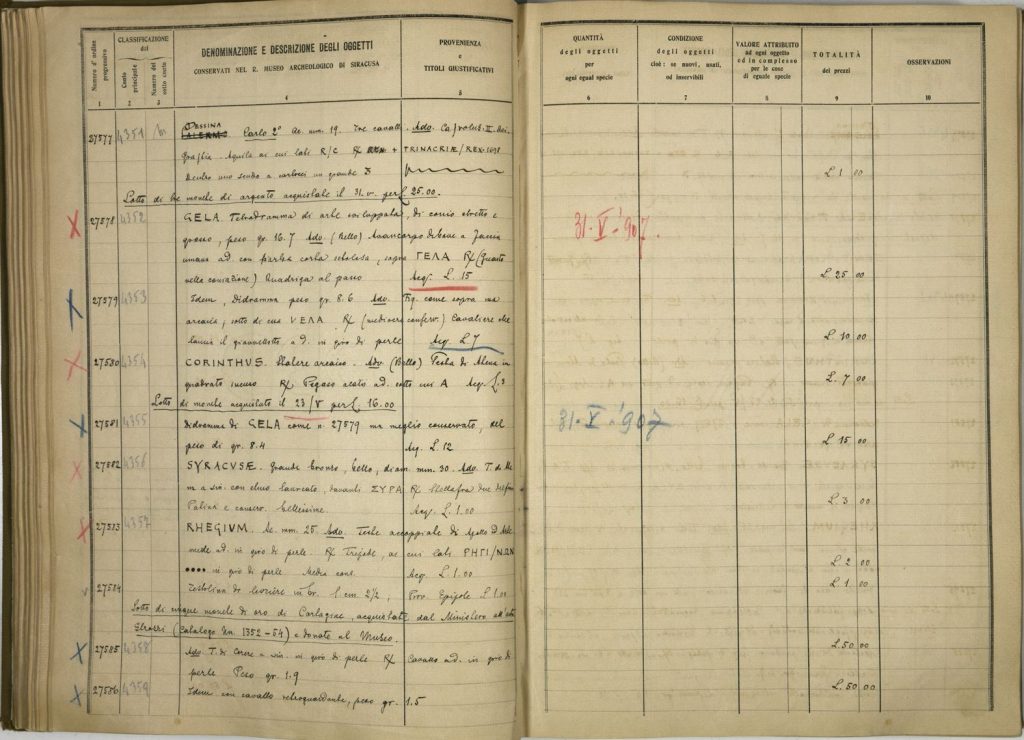 CLASSIFICAZIONE
del
Numero d'ordine progressivo
Conto principale
Numero del sotto conto
DENOMINAZIONE E DESCRIZIONE DEGLI OGGETTI
CONSERVATI NEL R. MUSEO ARCHEOLOGICO DI SIRACUSA
PROVENIENZA
e
TITOLI GIUSTIFICATIVI
QUANTITÀ
degli oggetti
per
ogni egual specie
CONDIZIONE
degli oggetti
cioè: se nuovi, usati,
od inservibili
VALORE ATTRIBUITO
ad ogni oggetto
ed in complesso
per le cose
di eguale specie
TOTALITÀ
dei prezzi
OSSERVAZIONI
1 2 3 4 5 6 7 8 9 10
27577 4351 MESSINA Carlo 2° Ae. mm. 19. Tre cavalli. Adv.
Aquila ai cui lati R/C R/ REX + TRINACRIÆ/REX.
dentro uno scudo a cartocci un grande 3 L. 1 00
Lotto di tre monete di argento acquistate il 31. V. per £ 25.00.
27578 4352 GELA. Tetradramma di arte sviluppata, di conio stretto e
grosso, peso gr. 16.7 Adv. (Bello) Avancorpo di bove a faccia 31-V-'907.
umana ad. con barba corta setolosa, sopra ΓΕΛΑ R/ (Guasto
nella coniazione) Quadriga al passo Acq. L. 15 L. 25 00
27579 4353 Idem, Didramma peso gr. 8.6 Adv. Fig. come sopra ma
arcaica, sotto di essa VEΛA. R/ (mediocre conserv.) Cavaliere che
lancia il giavellotto a d. in giro di perle Acq. L. 7 L. 10 00
27580 4354 CORINTHUS. Statere arcaico. Adv. (Bello) Testa di Atena in
quadrato incuso R/ Pegaso ad. sotto cui A Acq. L. 3 L. 7 00
Lotto di monete acquistato il 23/V per £. 16.00
27581 4355 Didramma di GELA come n. 27579 ma meglio conservato, del 31-V-'907
peso di gr. 8.4 Acq. L. 12 L. 15 00
27582 4356 SYRACUSÆ. Grande bronzo, bello, diam. mm. 30. Adv. T. di
a sin. con elmo laureato, davanti ΣΥΡΑ R/ Stella fra due delfini
Patina e conserv. bellissime. Acq. L. 1.00 L. 3 00
27583 4357 RHEGIUM. Ae. mm. 25 Adv. Teste accoppiate di Apollo ed
ad. in giro di perle. R/ Tripode, ai cui lati ΡΗΓΙ/ΝΩΝ
•••• in giro di perle Media cons. Acq. L. 1.00 L. 2 00
27584 Testolina di levriere in br. l. cm 2½, Prov. Epipole L. 1.00 L. 1 00
Lotto di cinque monete di oro di Cartagine, acquistate dal Ministero all'asta
Strozzi (Catalogo nn. 1352-54) e donate al Museo.
27585 4358 Adv. T. di Cerere a sin. in giro di perle R/ Cavallo ad. in giro di L. 50 00
perle Peso gr. 1.9
27586 4359 Idem con cavallo retroguardante, peso gr. 1.5 L. 50 00